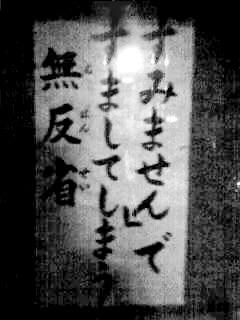 すみませんで
すましてしまう
無反省